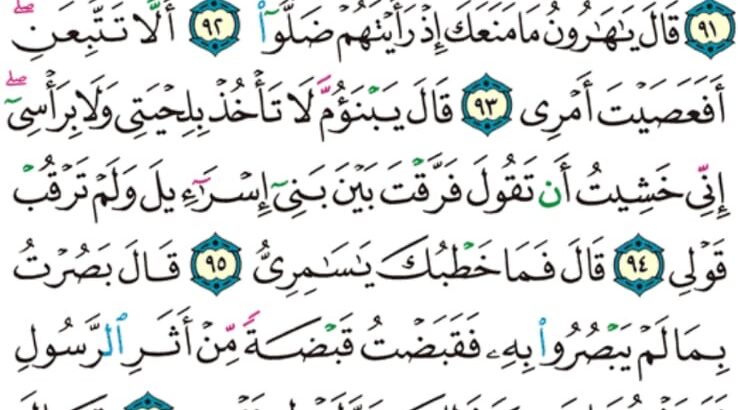 ٩١ قَالَ يَـٰهَـٰرُونُ مَا مَنَعَكَ إِذْ رَأَيْتَهُمْ ضَلُّوٓا۟ ٩٢ أَلَّا تَتَّبِعَنِۖ
أَفَعَصَيْتَ أَمْرِى ٩٣ قَالَ يَبْنَؤُمَّ لَا تَأْخُذْ بِلِحْيَتِى وَلَا بِرَأْسِىٓۖ
إِنِّى خَشِيتُ أَن تَقُولَ فَرَّقْتَ بَيْنَ بَنِىٓ إِسْرَٰٓءِيلَ وَلَمْ تَرْقُبْ
قَوْلِى ٩٤ قَالَ فَمَا خَطْبُكَ يَـٰسَـٰمِرِىُّ ٩٥ قَالَ بَصُرْتُ
بِمَا لَمْ يَبْصُرُوا۟ بِهِۦ فَقَبَضْتُ قَبْضَةً مِّنْ أَثَرِ ٱلرَّسُولِ